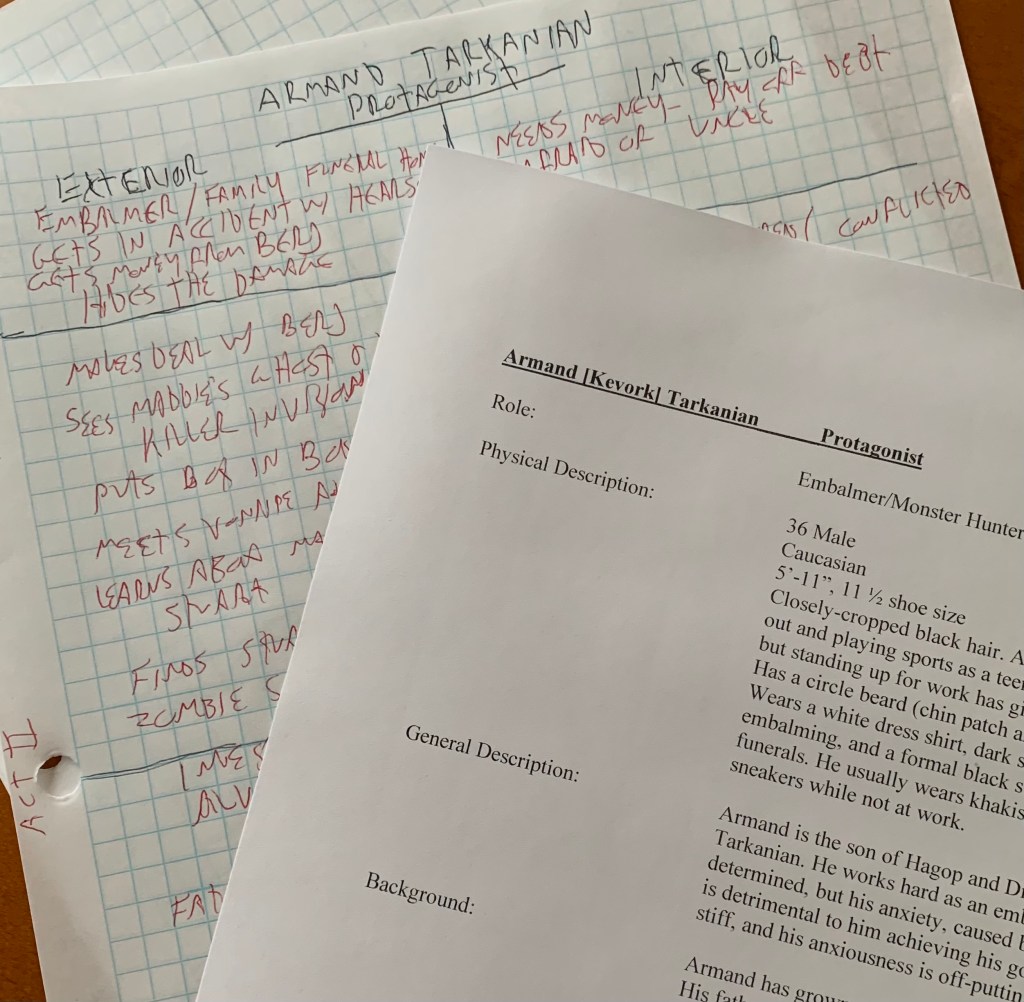 ARMAND TARKANIAN
PROTAGONIST
EXTERIOR
INTERIOR
EMBALMER/FAMILY FUNERAL
GETS IN ACCIDENT W/ HEARS
GETS MONEY FROM BERJ
HIDES THE DAMAGE
NEEDS MONEY- PAY OFF DEBT
AFRAID OF UNCLE
CONFLICTED
MAKES DEAL W/ BERJ
SEES MADDIE'S GHOST
KILLER
PUTS BOX IN
MEETS
LEARNS ABOUT
FINDS
ZOMBIE
Act II
Armand [Kevork] Tarkanian Protagonist
Role:
Embalmer/Monster Hunter
Physical Description:
36 Male
Caucasian
5'-11", 11 ½ shoe size
Closely-cropped black hair. A
out and playing sports as a tee
but standing up for work has gi
Has a circle beard (chin patch a
Wears a white dress shirt, dark s
embalming, and a formal black s
funerals. He usually wears khakis
sneakers while not at work.
General Description:
Armand is the son of Hagop and
Tarkanian. He works hard as an emb
determined, but his anxiety, caused
is detrimental to him achieving his go
stiff, and his anxiousness is off-puttin
Background:
Armand has grow
His fath